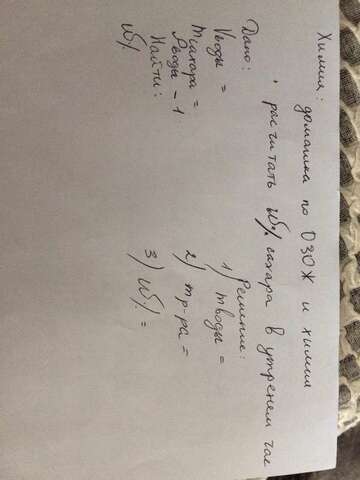 Химия: домашка по ОЗОЖ и химия
рассчитать W% сахара в утренем чае
Дано:
Vводы =
mсахара =
ρводы - 1
Найти:
W%
Решение:
1) mводы =
2) mр-ра =
3) W% =